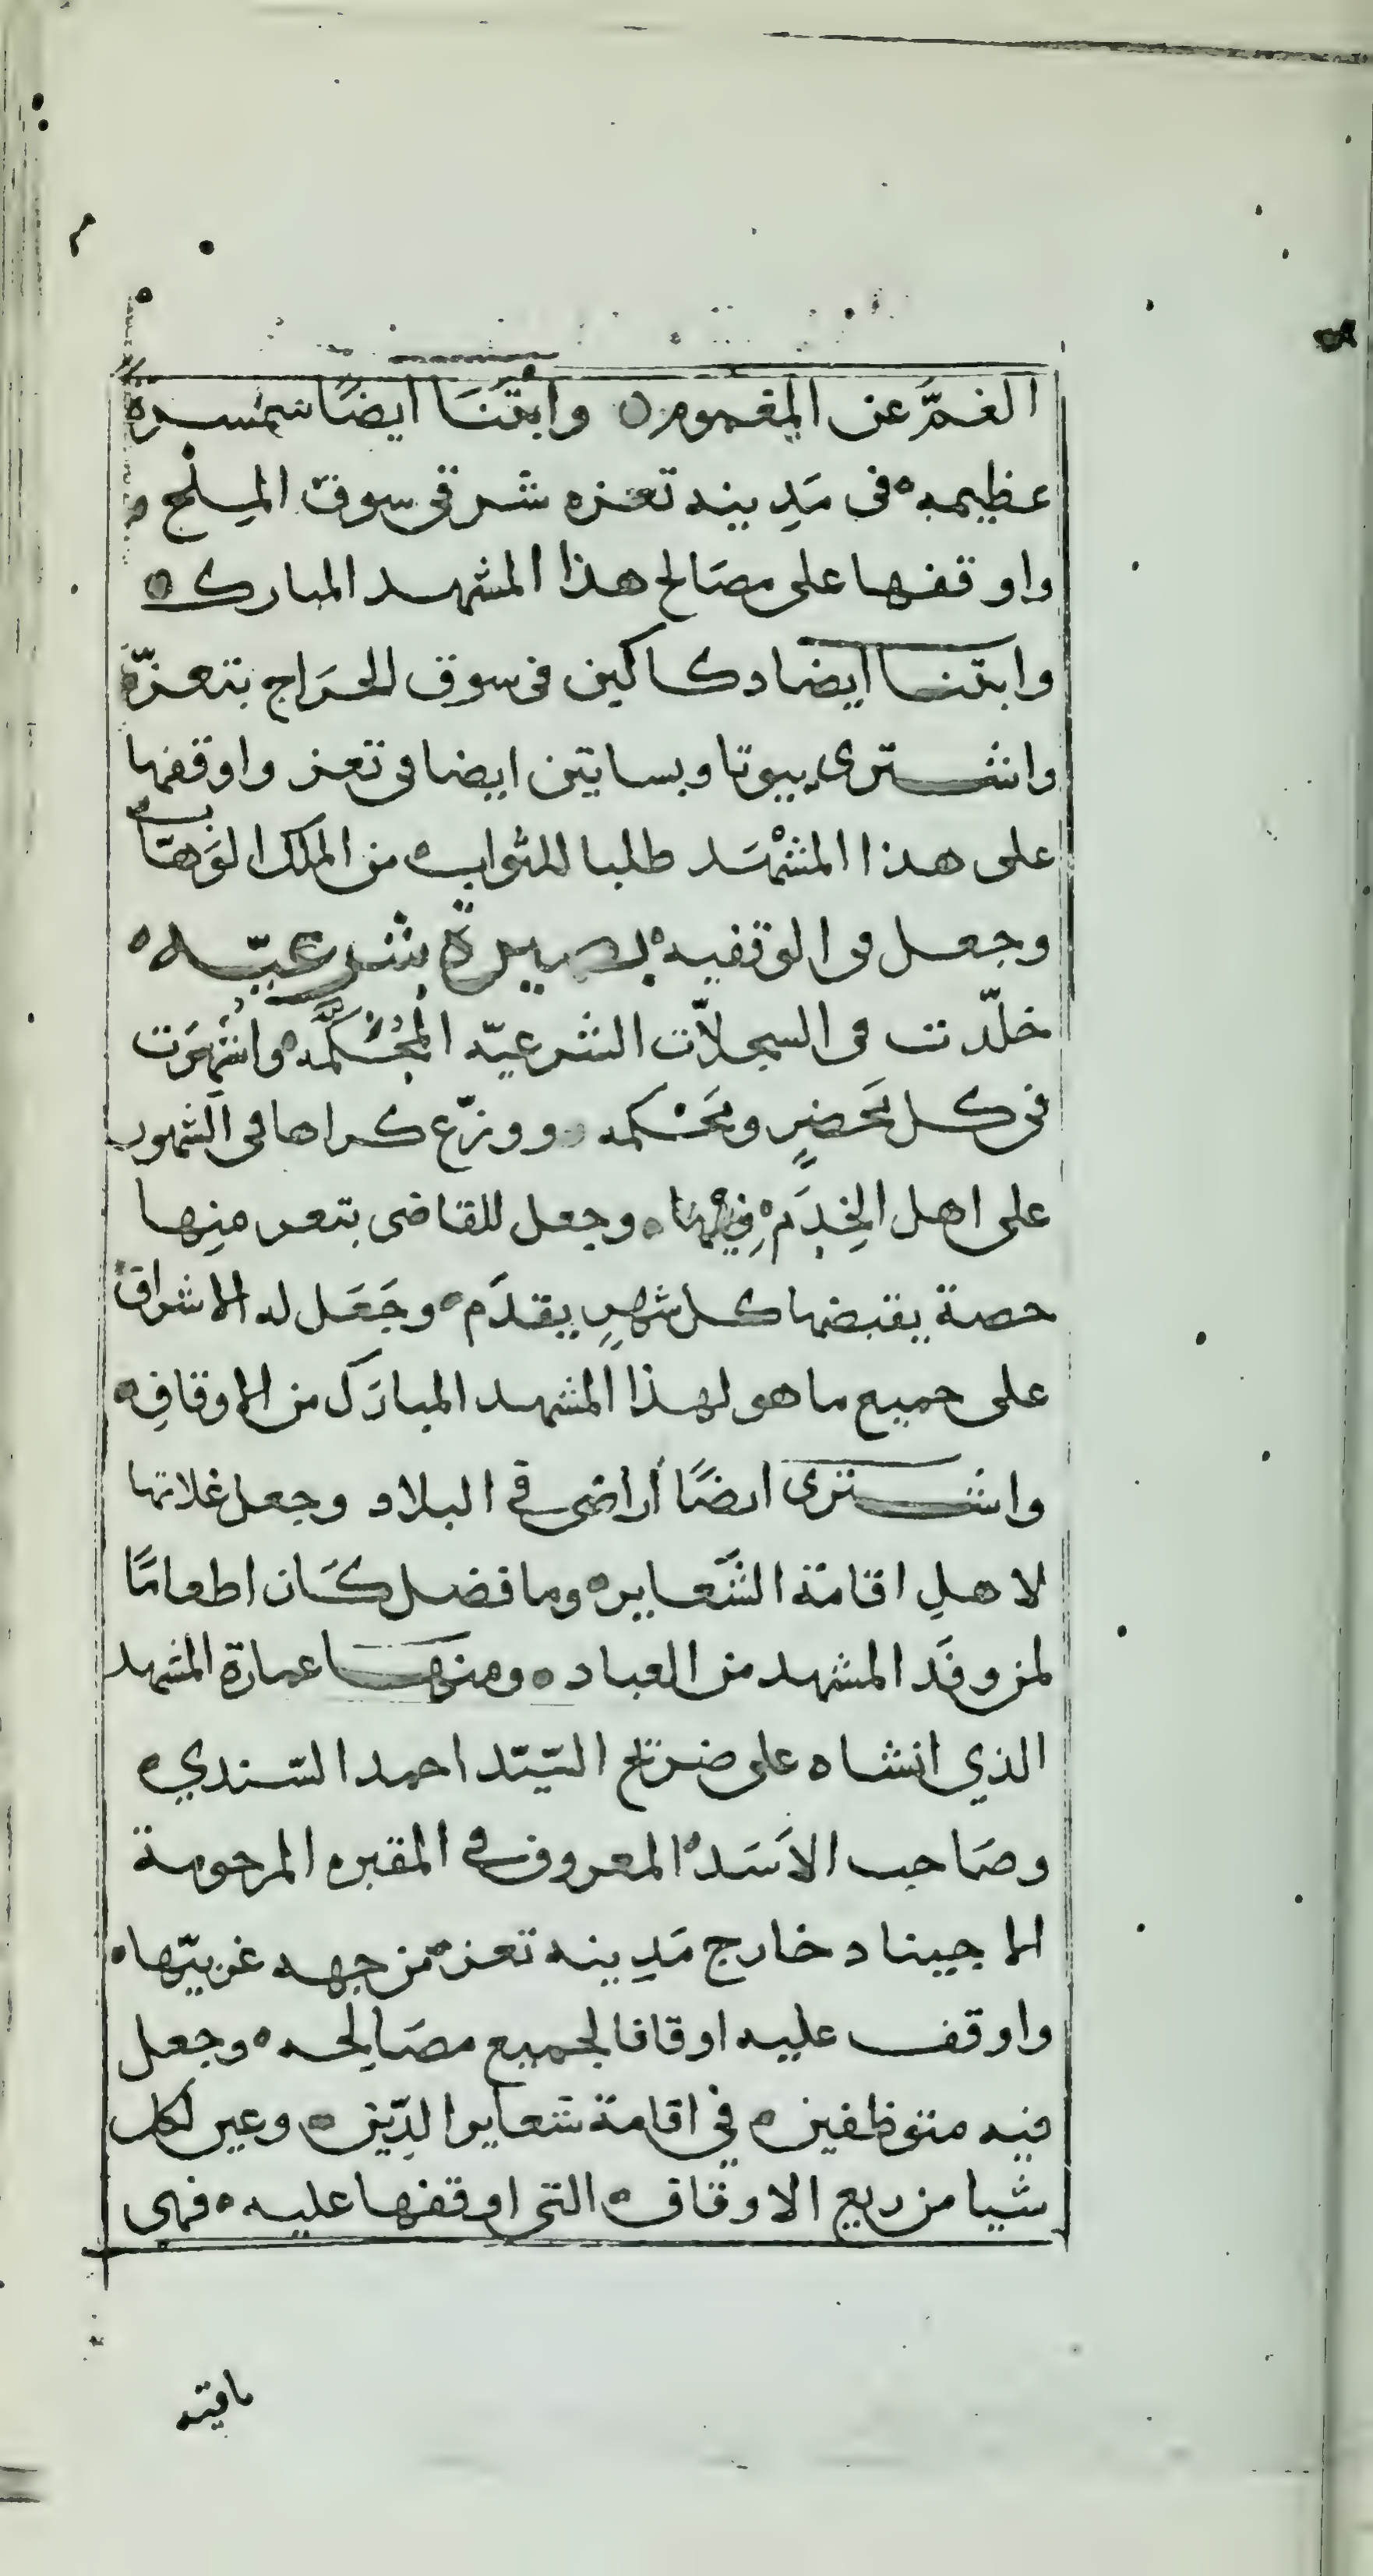 الغمَّ عن المغموم ه وابتنَا ايضًا سمسره
عظيمه ه فى مَدِينه تعزه شرقى سوق المِلح ه
واوقفها على مصَالح هذا المشهد المبارك ه
وابتنا ايضا دكاكين فى سوق الحَراج بتعزّه
واشترى بيوتا وبساتين ايضا فى تعز واوقفها
على هذا المشْهَد طلبا للثواب ه من الملك الوَهّاب
وجعل فى الوقفيه ه بصيرة شرعيّه ه
خلّدت فى السجلاّت الشرعيّه المُحْكَمَّه ه واشْهَرت
فى كل مَحضرٍ ومَحْكمه ه ووزّع كراها فى الشهور
على اهل الخِدَم ه فِيْهَا ه وجعل للقاضى بتعز مِنها
حصة يقبضها كل شهرٍ يقدَم ه وجَعَل له الاشراق
على جميع ما هو لهذا المشهد المبارَك من الاوقافِ ه
واشترى ايضًا أراضى فى البلاد وجعل غلاتها
لاهلِ اقامَة الشَّعاير ه وما فضل كَان اطعامًا
لمن وفَد المشهد من العباد ه ومنها عمارة المشهد
الذي انشاه على ضريح السَّيّد احمد السّندي ه
وصَاحب الاَسَد ه المعروف فى المقبره المرحومة
الاجيناد خارج مَدِينه تعز ه من جهه غربيّها ه
واوقف عليه اوقافا لجميع مصَالِحه ه وجعل
فيه متوظفين ه في اقامة شعاير الدِّين ه وعين لكل
شيا من ريع الاوقاف ه التى اوقفها عليه ه فهى
باقيه